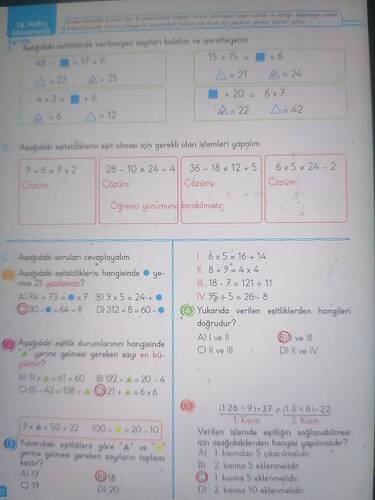 18. Hafta
Matematik
Aşağıdaki eşitliklerde verilmeyen sayıları bulalım ve işaretleyelim.
48 - ■ = 17 + 6
△ = 23 △ = 25
15 + 15 = ■ + 6
△ = 21 △ = 24
4 x 3 = ■ + 6
△ = 6 △ = 12
■ + 20 = 6 x 7
△ = 22 △ = 42
B. Aşağıdaki eşitsizliklerin eşit olması için gerekli olan işlemleri yapalım.
7 + 6 ≠ 7 x 2
Çözüm:
28 - 10 ≠ 24 ÷ 4
Çözüm:
36 - 18 ≠ 12 + 5
Çözüm:
6 x 5 ≠ 24 - 2
Çözüm:
Öğrenci yorumuna bırakılmıştır.
C. Aşağıdaki soruları cevaplayalım.
Aşağıdaki eşitsizliklerin hangisinde ● ye-
rine 21 yazılamaz?
A) 74 + 73 = ● x 7 B) 9 x 5 = 24 + ●
C) 30 - ● = 64 ÷ 8 D) 312 ÷ 8 = 60 - ●
2 Aşağıdaki eşitlik durumlarının hangisinde
▲ yerine gelmesi gereken sayı en bü-
yüktür?
A) 11 x ▲ = 61 + 60 B) 192 ÷ ▲ = 20 - 4
C) 65 - 42 = 138 ÷ ▲ D) 21 + ▲ = 6 x 6
9 x ▲ = 50 + 22 100 ÷ ■ = 20 - 10
3 Yukarıdaki eşitliklere göre "▲" ve "■"
yerine gelmesi gereken sayıların toplamı
kaçtır?
A) 17 B) 18
C) 19 D) 20
I. 6 x 5 = 16 + 14
II. 8 + 9 = 4 x 4
III. 18 - 7 = 121 ÷ 11
IV. 95 ÷ 5 = 26 - 8
4 Yukarıda verilen eşitliklerden hangileri
doğrudur?
A) I ve II B) I ve III
C) II ve III D) II ve IV
(126 ÷ 9) + 37 = (13 x 6) - 22
1. Kısım 2. Kısım
Verilen işlemde eşitliğin sağlanabilmesi
için aşağıdakilerden hangisi yapılmalıdır?
A) 1. kısımdan 5 çıkarılmalıdır.
B) 2. kısma 5 eklenmelidir.
C) 1. kısma 5 eklenmelidir.
D) 2. kısma 10 eklenmelidir.